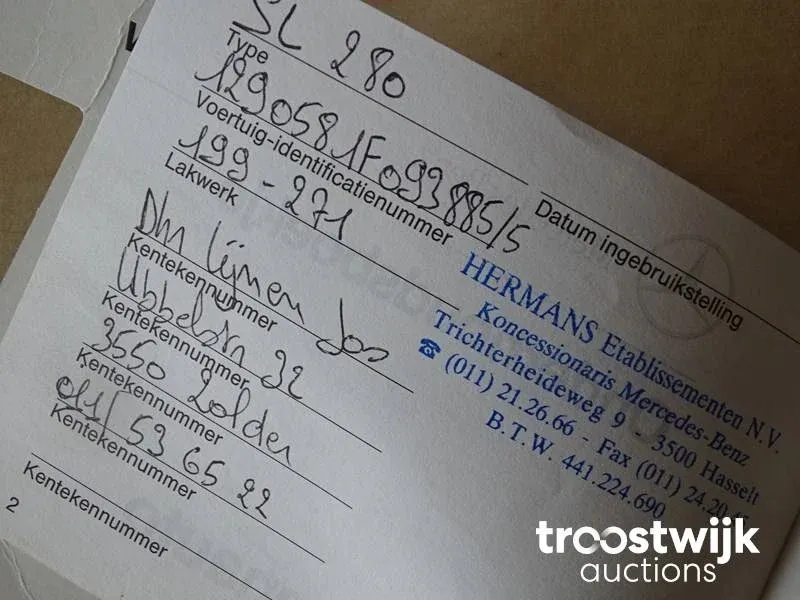 SL 280
Type
1290581F093885/5
Voertuig-identificatienummer
Datum ingebruikstelling
199-271
Lakwerk
Dhr Lijnen Jos
Kentekennummer
Ubbelstr 32
Kentekennummer
3550 Zolder
Kentekennummer
011/ 53 65 22
Kentekennummer
Kentekennummer
2
HERMANS Etablissementen N.V.
Koncessionaris Mercedes-Benz
Trichterheideweg 9 - 3500 Hasselt
☎ (011) 21.26.66 - Fax (011) 24.20
B.T.W. 441.224.690
troostwijk
auctions